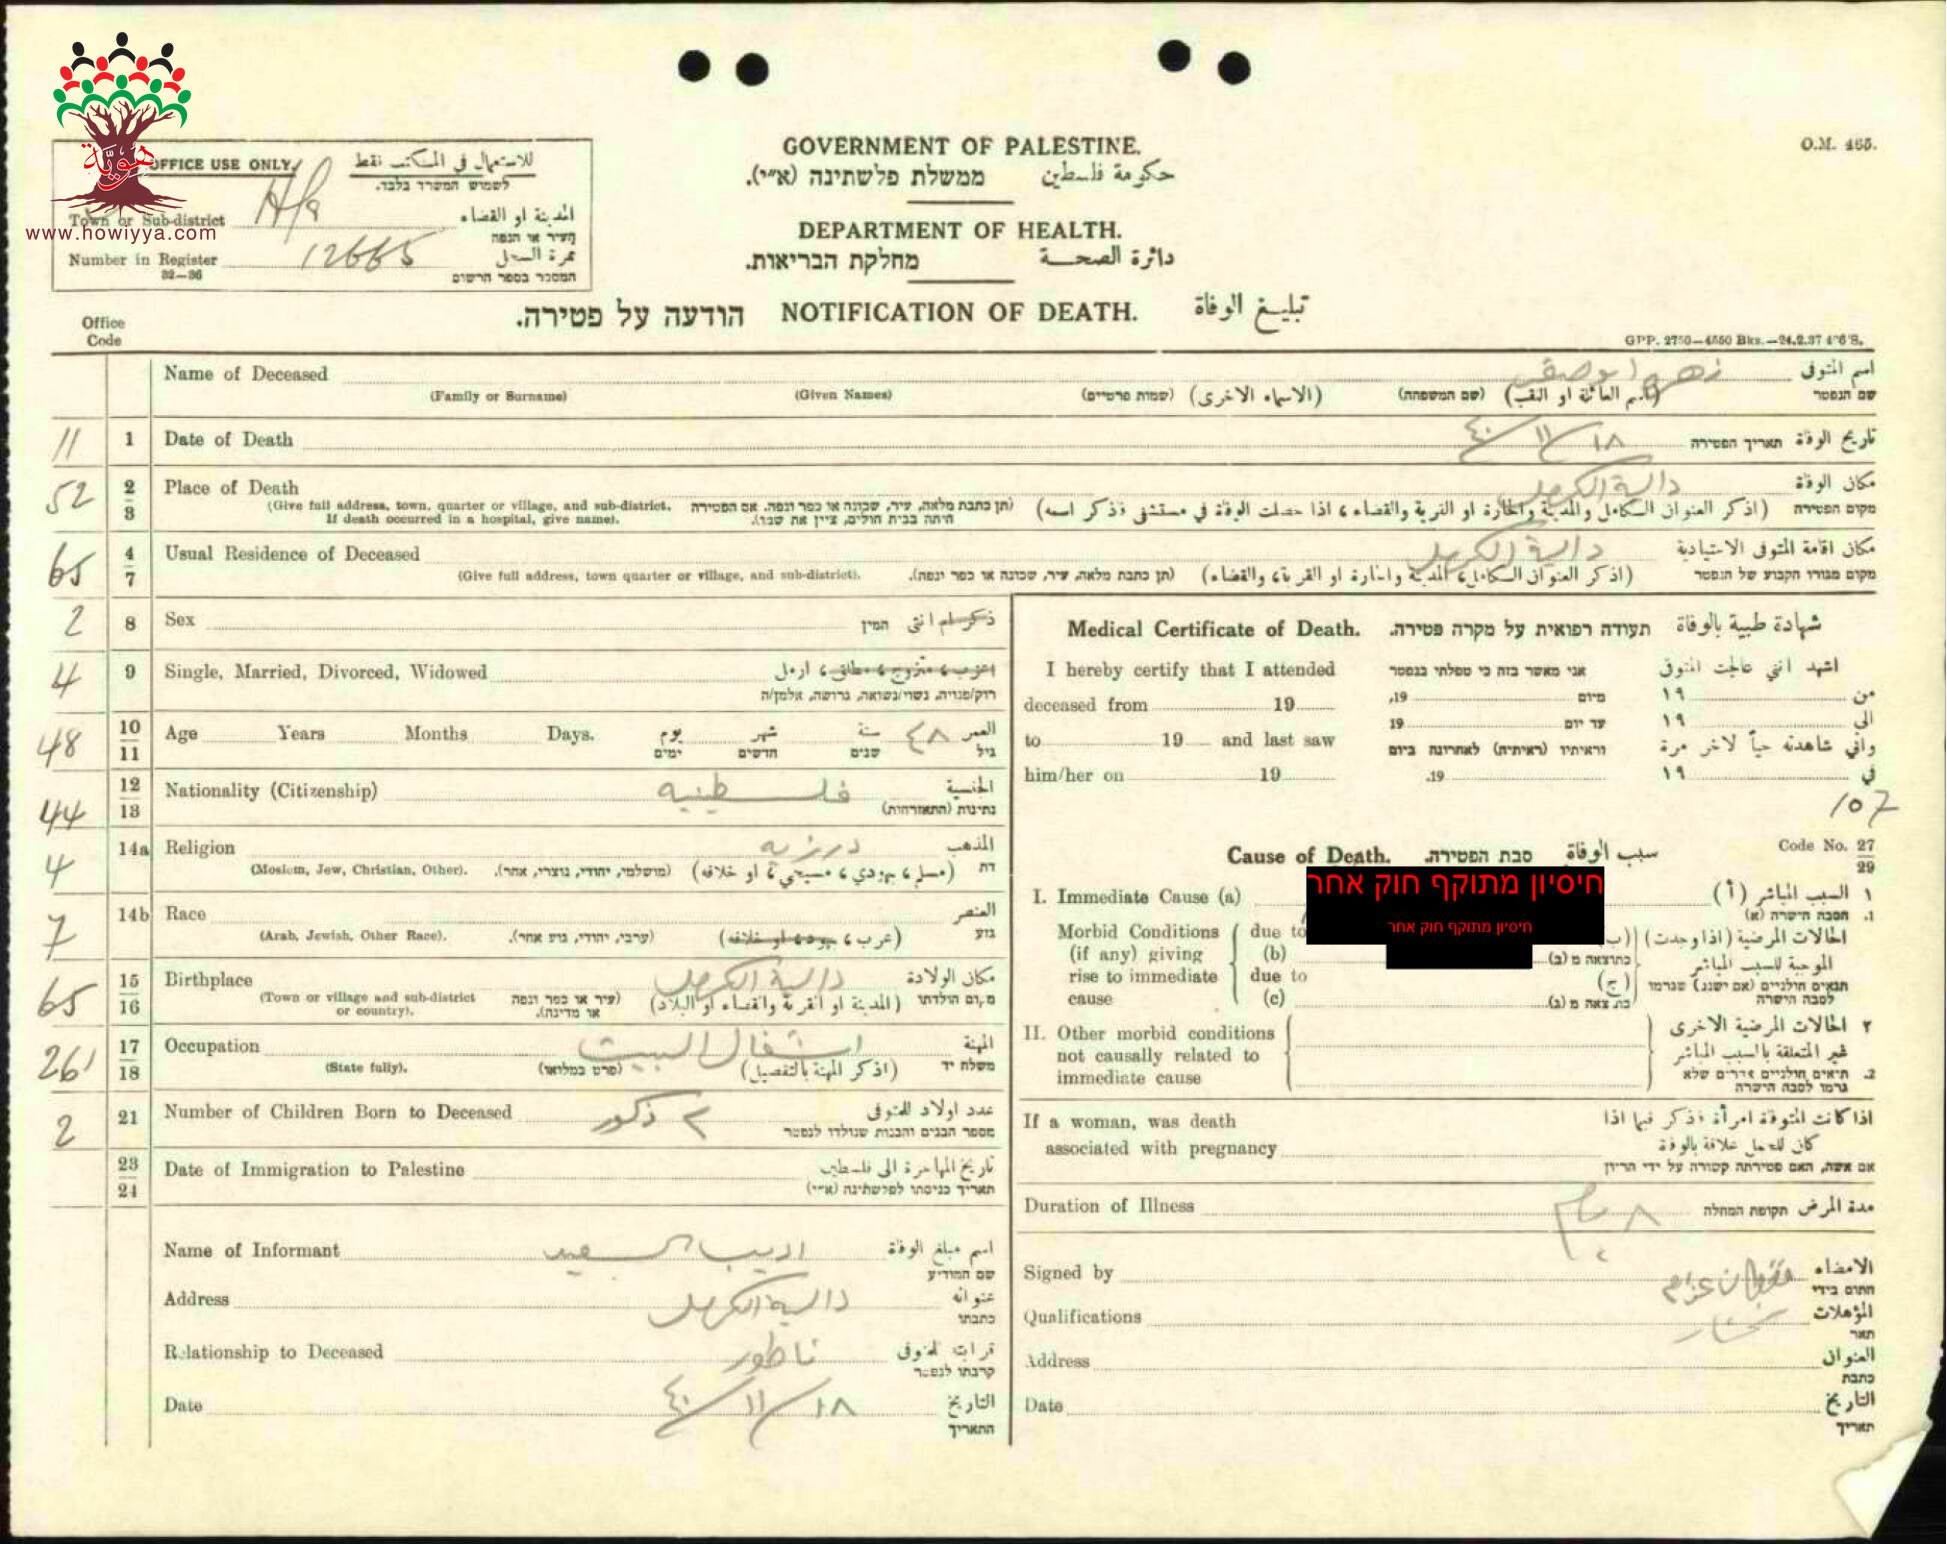 هويّة
www.howiyya.com
OFFICE USE ONLY. للاستعمال في المكتب فقط
לשמוש המשרד בלבד.
Town or Sub-district المدينة او القضاء
העיר או הנפה
Number in Register 12665 نمرة السجل
32—36 המספר בספר הרשום
GOVERNMENT OF PALESTINE.
ממשלת פלשתינה (א״י). حكومة فلسطين
DEPARTMENT OF HEALTH.
מחלקת הבריאות. دائرة الصحة
הודעה על פטירה. NOTIFICATION OF DEATH. تبليغ الوفاة
O.M. 465.
GPP. 2750—4550 Bks.—24.2.37
Office
Code
Name of Deceased اسم المتوفى
(Family or Surname) (Given Names) (שמות פרטיים) (الاسماء الاخرى) (שם המשפחה) (اسم العائلة او اللقب) שם הנפטר
11 1 Date of Death ١٨/١١/٤٠ תאריך הפטירה تاريخ الوفاة
52 2 3 Place of Death دالية الكرمل مكان الوفاة
(Give full address, town, quarter or village, and sub-district. If death occurred in a hospital, give name). (תן כתבת מלאה, עיר, שכונה או כפר ונפה. אם הפטירה היתה בבית חולים, ציין את שמו). (اذكر العنوان الكامل والمدينة والحارة او القرية والقضاء، اذا حصلت الوفاة في مستشفى فذكر اسمه) מקום הפטירה
65 4 7 Usual Residence of Deceased دالية الكرمل مكان اقامة المتوفى الاعتيادية
(Give full address, town quarter or village, and sub-district). (תן כתבת מלאה, עיר, שכונה או כפר ונפה). (اذكر العنوان الكامل، المدينة والحارة او القرية، والقضاء) מקום מגורו הקבוע של הנפטר
2 8 Sex המין ذكر ام انثى
4 9 Single, Married, Divorced, Widowed اعزب، متزوج، مطلق، ارمل
רוק/פנויה, נשוי/נשואה, גרושה, אלמן/ה
48 10 11 Age Years Months Days. יום شهر ٤٨ سنة العمر
ימים חדשים שנים גיל
44 12 13 Nationality (Citizenship) فلسطينيه الجنسية
נתינות (התאזרחות)
4 14a Religion درزيه المذهب
(Moslem, Jew, Christian, Other). (מושלמי, יהודי, נוצרי, אחר). (مسلم، يهودي، مسيحي، او خلافه) דת
7 14b Race العنصر
(Arab, Jewish, Other Race). (ערבי, יהודי, גזע אחר). (عرب، يهود، او خلافه) גזע
65 15 16 Birthplace دالية الكرمل مكان الولادة
(Town or village and sub-district or country). (עיר או כפר ונפה או מדינה). (المدينة او القرية والقضاء او البلاد) מקום הולדתו
261 17 18 Occupation اشغال البيت المهنة
(State fully). (פרט במלואו) (اذكر المهنة بالتفصيل) משלח יד
2 21 Number of Children Born to Deceased ٢ ذكور عدد اولاد المتوفى
מספר הבנים והבנות שנולדו לנפטר
23 24 Date of Immigration to Palestine تاريخ المهاجرة الى فلسطين
תאריך כניסתו לפלשתינה (א״י)
Name of Informant اديب السعيد اسم مبلغ الوفاة
שם המודיע
Address دالية الكرمل عنوانه
כתבתו
Relationship to Deceased ناطور قرابته للمتوفى
קרבתו לנפטר
Date ١٨/١١/٤٠ التاريخ
התאריך
Medical Certificate of Death. תעודה רפואית על מקרה פטירה. شهادة طبية بالوفاة
I hereby certify that I attended אני מאשר בזה כי טפלתי בנפטר اشهد انني عالجت المتوفى
deceased from 19 מיום 19, من ١٩
to 19 and last saw עד יום 19 الى ١٩
וראיתיו (ראיתיה) לאחרונה ביום واني شاهدته حياً لاخر مرة
him/her on 19 19. في ١٩
107
Cause of Death. סבת הפטירה. سبب الوفاة Code No. 27 29
חיסיון מתוקף חוק אחר
חיסיון מתוקף חוק אחר
I. Immediate Cause (a) ١ السبب المباشر (أ)
1. הסבה הישרה (א)
Morbid Conditions due to (ب) الحالات المرضية (اذا وجدت)
(if any) giving (b) כתוצאה מ (ב) الموجبة للسبب المباشر
rise to immediate due to (ج) תנאים חולניים (אם ישנם) שגרמו
cause (c) כתוצאה מ (ג) לסבה הישרה
II. Other morbid conditions ٢ الحالات المرضية الاخرى
not causally related to غير المتعلقة بالسبب المباشر
immediate cause 2. תנאים חולניים אחרים שלא
גרמו לסבה הישרה
If a woman, was death اذا كانت المتوفاة امرأة فذكر فيما اذا
associated with pregnancy كان للحمل علاقة بالوفاة
אם אשה, האם פטירתה קשורה על ידי הריון
Duration of Illness ٨ ايام תקופת המחלה مدة المرض
Signed by الامضاء
חתום בידי
Qualifications مختار المؤهلات
תאר
Address العنوان
כתבת
Date التاريخ
תאריך